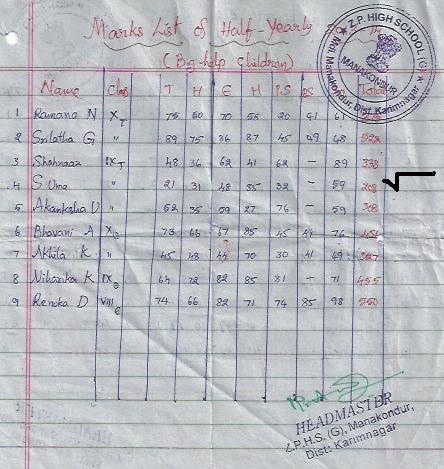 Marks List of Half-Yearly
(Big-help children)
Z.P. HIGH SCHOOL (G)
MANAKONDUR
Mdl. Manakondur, Dist: Karimnagar
Name Class T H E H P.S BS Total
1 Ramana N X T 75 60 70 55 20 41 61
2 Srilatha G " 89 75 86 87 45 49 68 522
3 Shahnaaz IX T 48 36 62 41 62 - 89 338
4 S Uma " 21 31 48 35 32 - 59 208
5 Akanksha U " 52 35 59 27 76 - 59 308
6 Bhavani A X E 73 66 67 85 45 76
7 Akhila K " 45 48 44 70 30 41 49 327
8 Niharika K IX E 64 72 82 85 81 - 71 455
9 Renuka D VIII E 74 66 82 71 74 85 98 550
HEADMASTER
Z.P.H.S. (G), Manakondur,
Dist: Karimnagar